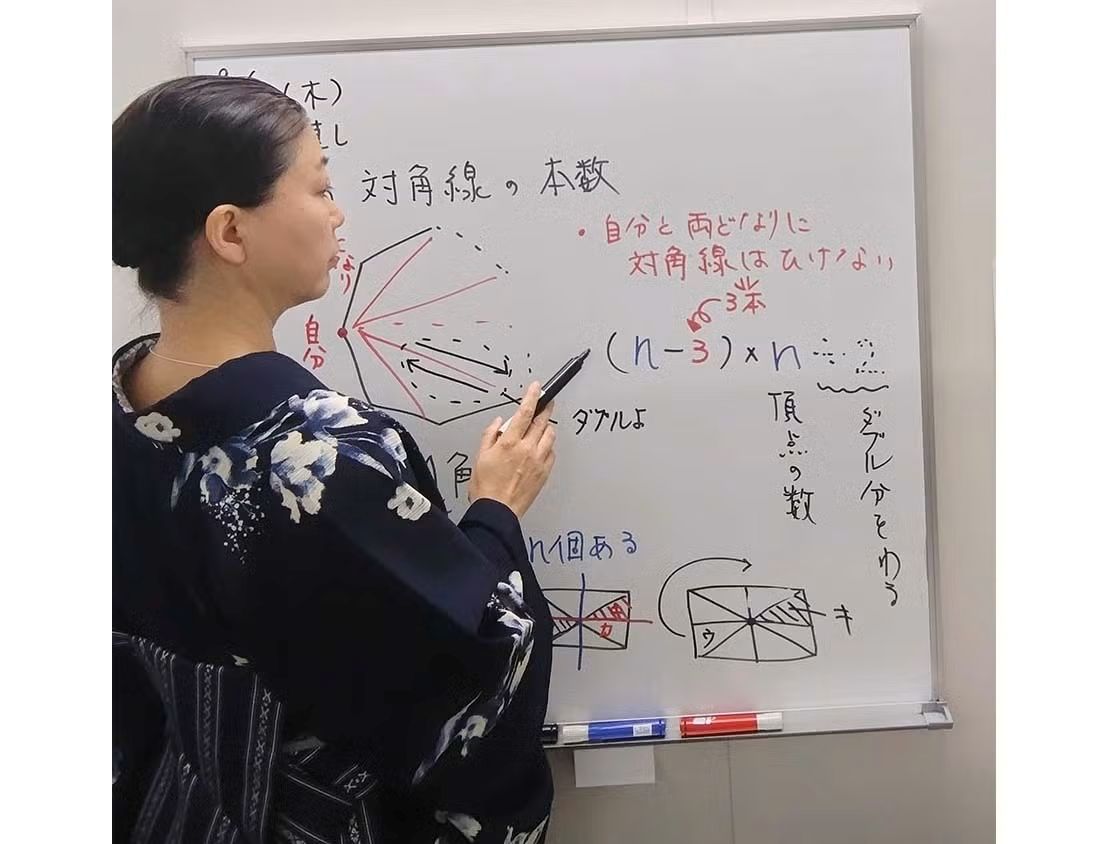 (木)
直し
対角線の本数
・自分と両どなりに
対角線はひけない
3本
となり
自分
(n-3)×n
ダブルよ
頂点の数
ダブル分をわる
角
n個ある
カ
ウ
キ